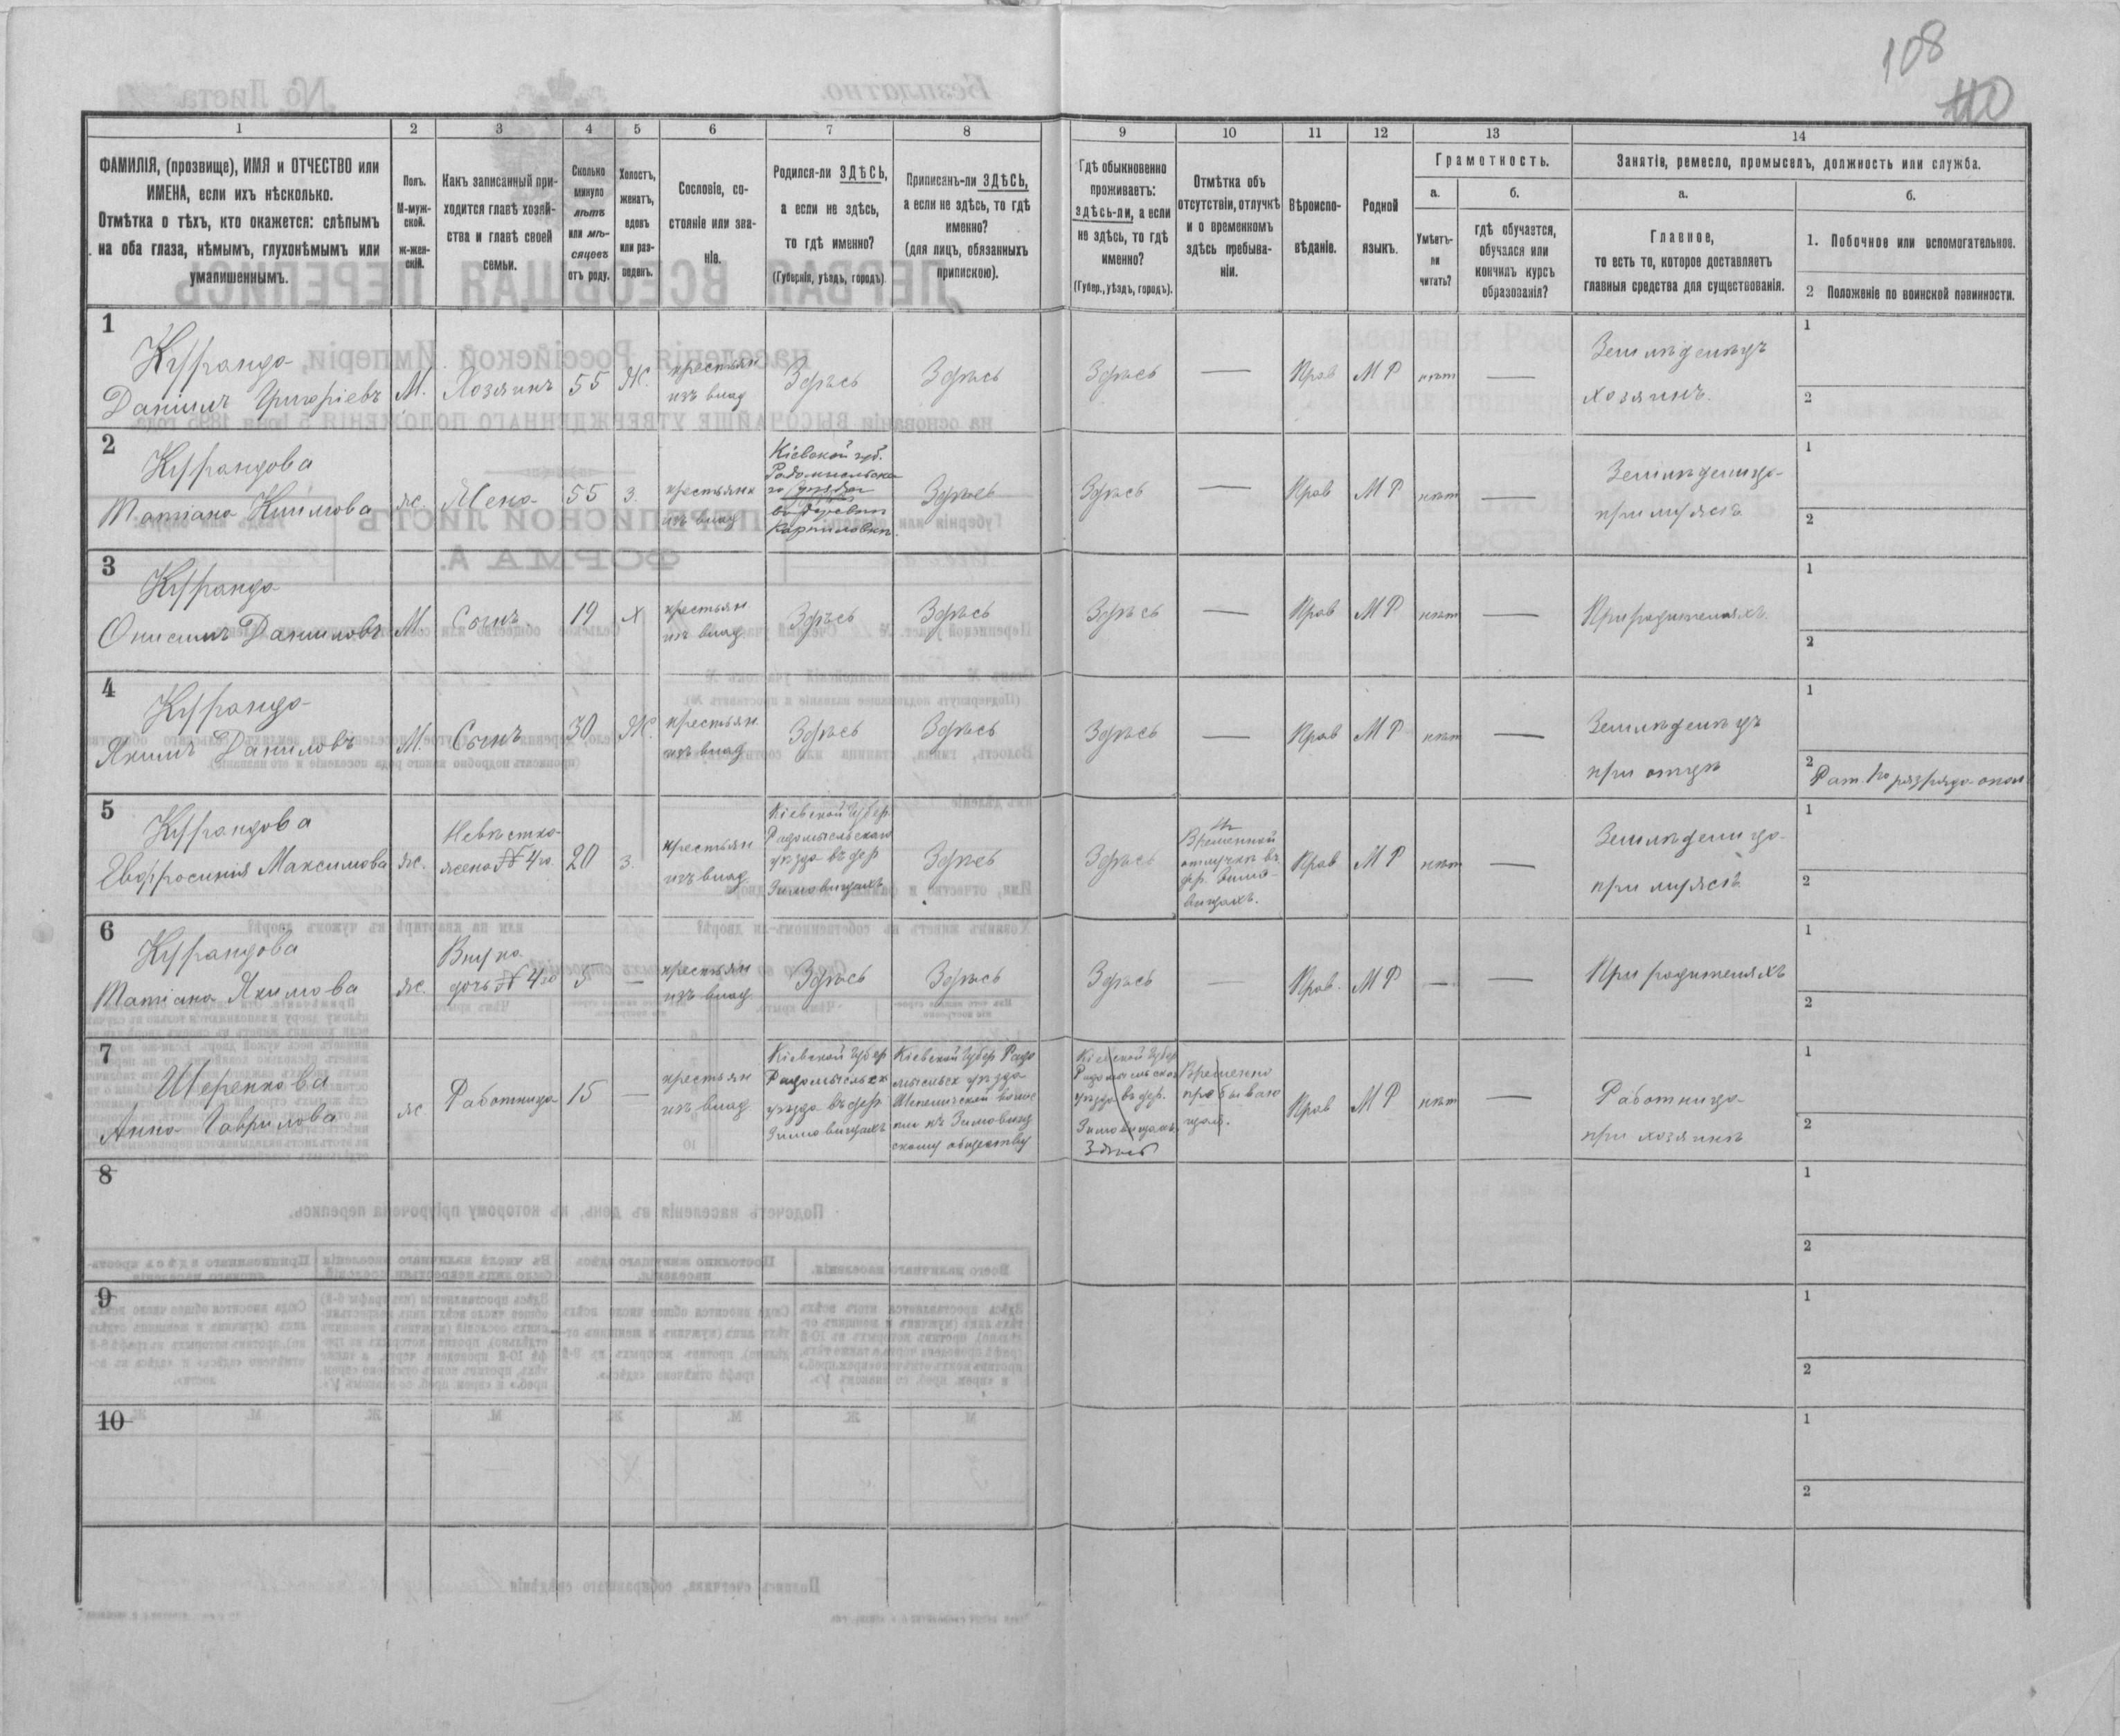 108
110
1 2 3 4 5 6 7 8 9 10 11 12 13 14
ФАМИЛІЯ, (прозвище), ИМЯ и ОТЧЕСТВО или
ИМЕНА, если ихъ нѣсколько.
Отмѣтка о тѣхъ, кто окажется: слѣпымъ
на оба глаза, нѣмымъ, глухонѣмымъ или
умалишеннымъ.
Полъ.
М-муж-
ской.
ж-жен-
скій.
Какъ записанный при-
ходится главѣ хозяй-
ства и главѣ своей
семьи.
Сколько
минуло
лѣтъ
или мѣ-
сяцевъ
отъ роду.
Холостъ,
женатъ,
вдовъ
или раз-
веденъ.
Сословіе, со-
стояніе или зва-
ніе.
Родился-ли ЗДѢСЬ,
а если не здѣсь,
то гдѣ именно?
(Губернія, уѣздъ, городъ).
Приписанъ-ли ЗДѢСЬ,
а если не здѣсь, то гдѣ
именно?
(для лицъ, обязанныхъ
припискою).
Гдѣ обыкновенно
проживаетъ:
здѣсь-ли, а если
не здѣсь, то гдѣ
именно?
(Губер., уѣздъ, городъ).
Отмѣтка объ
отсутствіи, отлучкѣ
и о временномъ
здѣсь пребыва-
ніи.
Вѣроиспо-
вѣданіе.
Родной
языкъ.
Грамотность.
а.
Умѣетъ-
ли
читать?
б.
гдѣ обучается,
обучался или
кончилъ курсъ
образованія?
Занятіе, ремесло, промыселъ, должность или служба.
а.
Главное,
то есть то, которое доставляетъ
главныя средства для существованія.
б.
1. Побочное или вспомогательное.
2 Положеніе по воинской повинности.
1
Данiилъ Григоріевъ
М. Хозяинъ 55 Ж.
крестьян
изъ влад
Здѣсь Здѣсь Здѣсь — Прав М Р нѣт —
Земледѣлецъ
хозяинъ.
1
2
2
Матiана Климова
ж. Жена 55 з.
крестьянк
изъ влад
Кіевской губ.
въ деревни
Карпиловки.
Здѣсь Здѣсь — Прав М Р нѣт —
при мужѣ
1
2
3
Онисимъ Даниловъ
М. Сынъ. 19 Х
крестьян
изъ влад
Здѣсь Здѣсь Здѣсь — Прав М Р нѣт —
При родителяхъ.
1
2
4
Якимъ Даниловъ
М. Сынъ 30 Ж.
крестьян.
изъ влад
Здѣсь Здѣсь Здѣсь — Прав М Р нѣт —
Земледѣлецъ
при отцѣ
1
2
Рат. 1го разряда опол
5
Евфросинія Максимова
ж.
Невѣстка
жена № 4го
20 з.
крестьян
изъ влад.
Кіевской Губер.
Радомысльскаго
уѣзда въ дер
Зимовищахъ
Здѣсь Здѣсь
Временной
отлучкѣ въ
дер. Зимо-
вищахъ.
Прав М Р нѣт —
при мужѣ
1
2
6
Матiана Якимова
ж.
Внучка
дочь № 4го
5 —
крестьян
изъ влад.
Здѣсь Здѣсь Здѣсь — Прав. М Р — —
При родителяхъ
1
2
7
Шеренкова
Анна Гаврилова
ж. Работница 15 —
крестьян
изъ влад
Кіевской Губер
Радомысльск
уѣзда въ дер
Зимовищахъ
Кіевской Губер Радо
мысльск уѣзда
Шепеличской волос
ти къ Зимовищ
скому обществу
Кіевской Губер
Радомысльска
уѣзда въ дер.
Зимовищахъ
Здѣсь
Временно
пребываю
щая.
Прав М Р нѣт —
Работница
при хозяинѣ
1
2
8
1
2
9
1
2
10
1
2